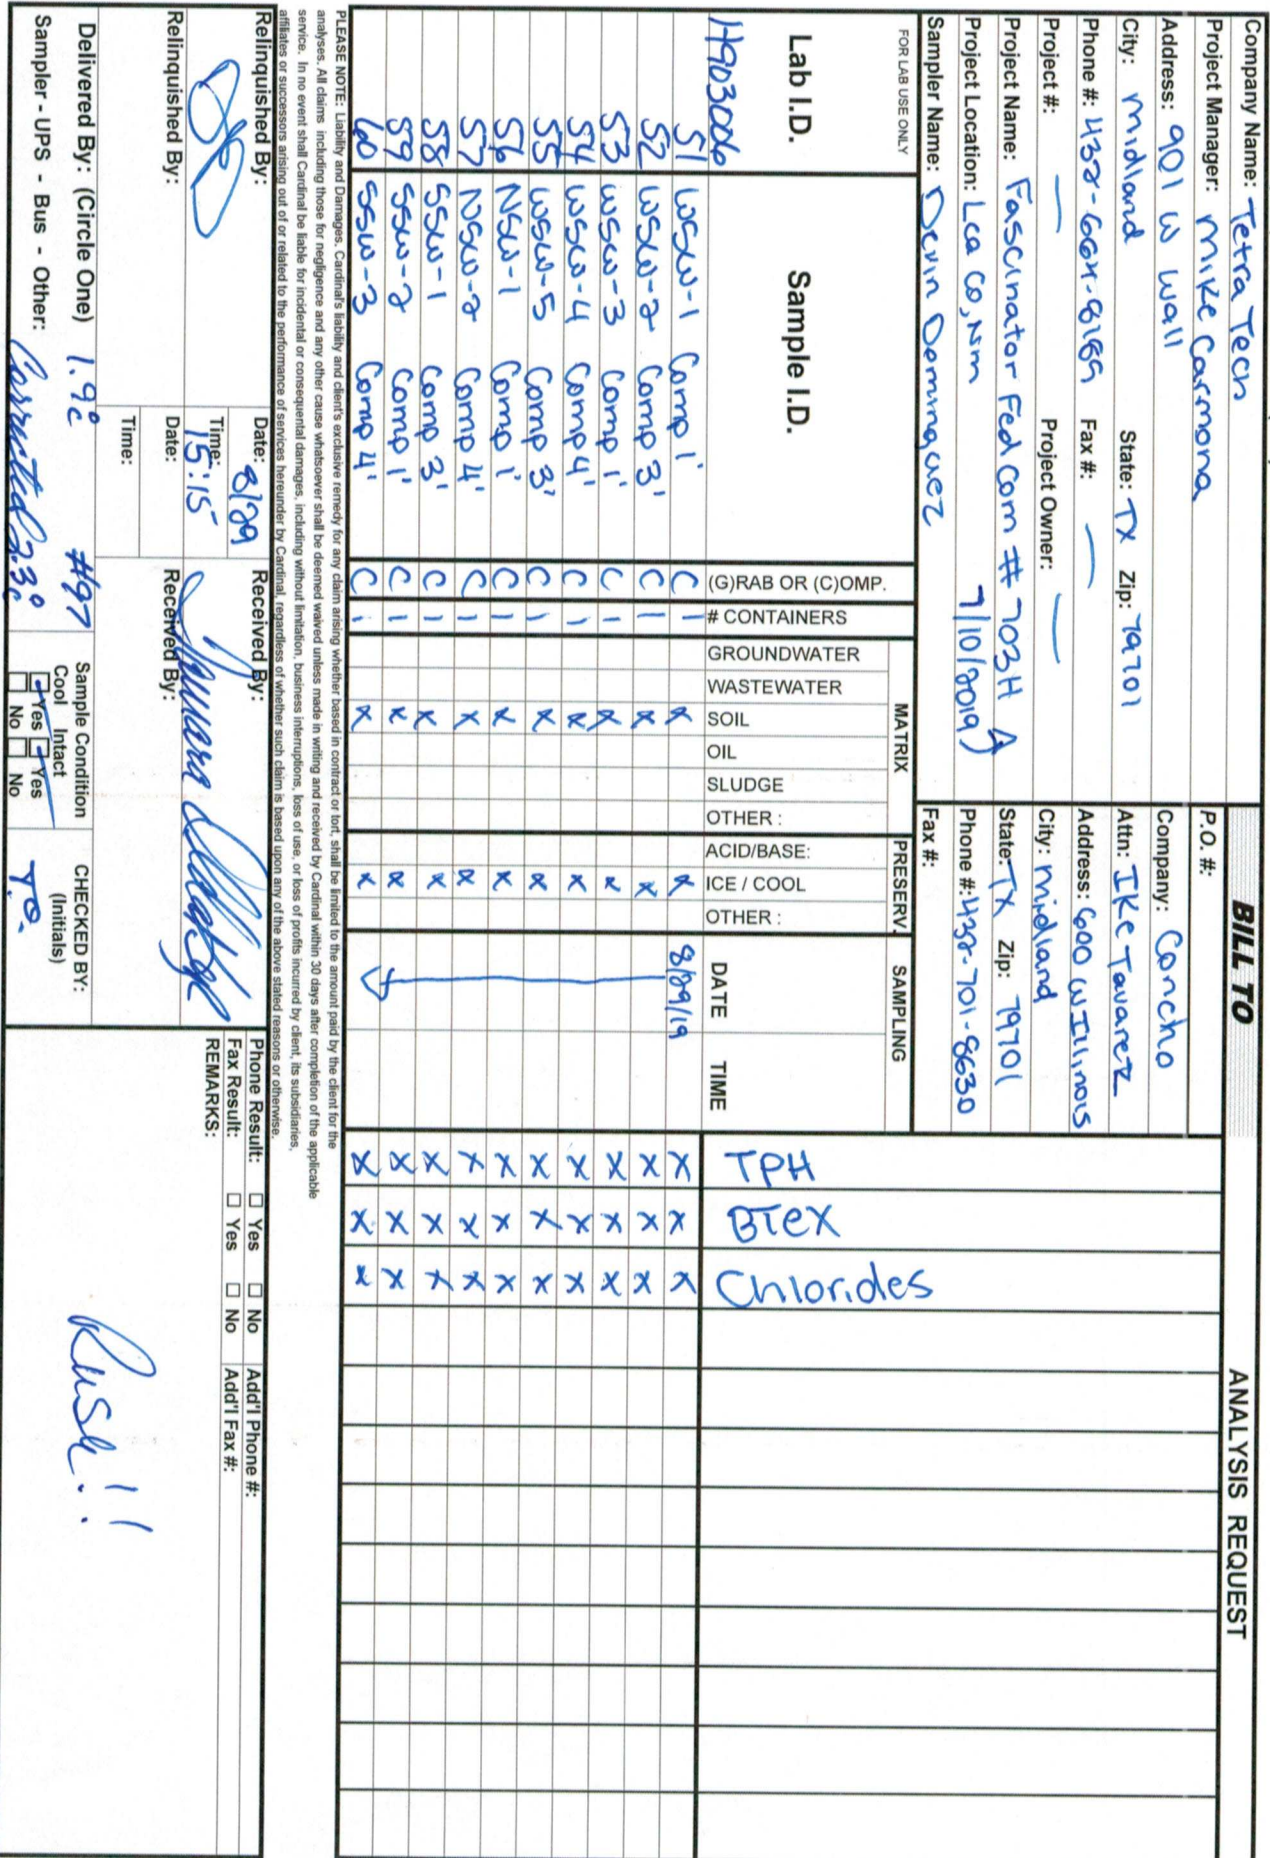 Company Name: Tetra Tech
Project Manager: Mike Carmona
Address: 901 W Wall
City: Midland State: TX Zip: 79701
Phone #: 432-664-8189 Fax #: —
Project #: — Project Owner: —
Project Name: Fascinator Fed Com # 703H
Project Location: Lea Co, NM 7/10/2019)
Sampler Name: Devin Dominguez
BILL TO
P.O. #:
Company: Concho
Attn: IKe Tavarez
Address: 600 W Illinois
City: Midland
State: TX Zip: 79701
Phone #: 432-701-8630
Fax #:
ANALYSIS REQUEST
FOR LAB USE ONLY
MATRIX PRESERV. SAMPLING
Lab I.D. Sample I.D. (G)RAB OR (C)OMP. # CONTAINERS GROUNDWATER WASTEWATER SOIL OIL SLUDGE OTHER : ACID/BASE: ICE / COOL OTHER : DATE TIME TPH BTeX Chlorides
H903006
51 WSW-1 Comp 1' C 1 X X 8/29/19 X X X
52 WSW-2 Comp 3' C 1 X X X X X
53 WSW-3 Comp 1' C 1 X X X X X
54 WSW-4 Comp 4' C 1 X X X X X
55 WSW-5 Comp 3' C 1 X X X X X
56 NSW-1 Comp 1' C 1 X X X X X
57 NSW-2 Comp 4' C 1 X X X X X
58 SSW-1 Comp 3' C 1 X X X X X
59 SSW-2 Comp 1' C 1 X X X X X
60 SSW-3 Comp 4' C 1 X X X X X
PLEASE NOTE: Liability and Damages. Cardinal's liability and client's exclusive remedy for any claim arising whether based in contract or tort, shall be limited to the amount paid by the client for the
analyses. All claims including those for negligence and any other cause whatsoever shall be deemed waived unless made in writing and received by Cardinal within 30 days after completion of the applicable
service. In no event shall Cardinal be liable for incidental or consequental damages, including without limitation, business interruptions, loss of use, or loss of profits incurred by client, its subsidiaries,
affiliates or successors arising out of or related to the performance of services hereunder by Cardinal, regardless of whether such claim is based upon any of the above stated reasons or otherwise.
Relinquished By: Date: 8/29 Received By:
Time: 15:15
Relinquished By: Date: Received By:
Time:
Phone Result: ☐ Yes ☐ No Add'l Phone #:
Fax Result: ☐ Yes ☐ No Add'l Fax #:
REMARKS:
Rush!!
Delivered By: (Circle One) 1.9c #97
Sampler - UPS - Bus - Other: Corrected 2.3°c
Sample Condition
Cool Intact
Yes Yes
No No
CHECKED BY:
(Initials)
T.O.